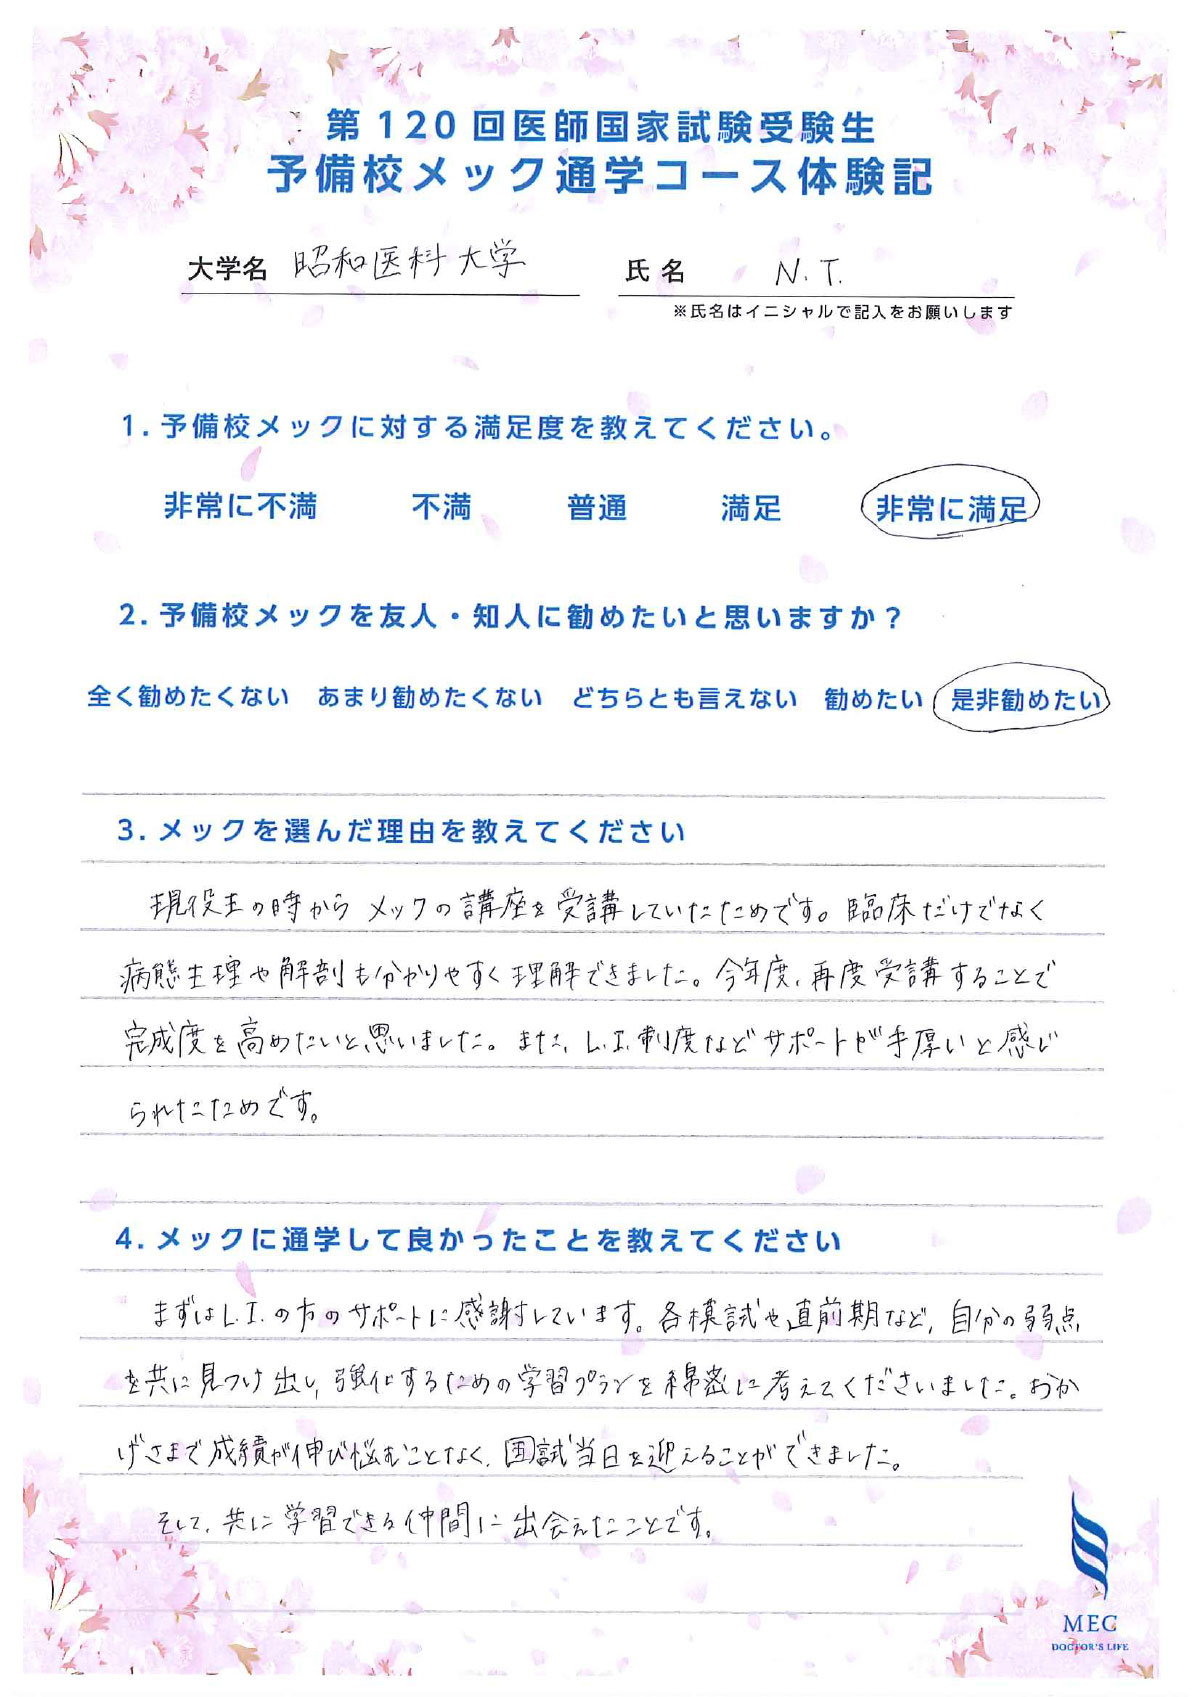 第120回医師国家試験受験生
予備校メック通学コース体験記
大学名 昭和医科大学 氏名 N.T.
※氏名はイニシャルで記入をお願いします
1. 予備校メックに対する満足度を教えてください。
非常に不満 不満 普通 満足 非常に満足
2. 予備校メックを友人・知人に勧めたいと思いますか？
全く勧めたくない あまり勧めたくない どちらとも言えない 勧めたい 是非勧めたい
3. メックを選んだ理由を教えてください
現役生の時からメックの講座を受講していたためです。臨床だけでなく
病態生理や解剖も分かりやすく理解できました。今年度、再度受講することで
完成度を高めたいと思いました。また、L.I.制度などサポートが手厚いと感じ
られたためです。
4. メックに通学して良かったことを教えてください
まずはL.I.の方のサポートに感謝しています。各模試や直前期など、自分の弱点
を共に見つけ出し、強化するための学習プランを綿密に考えてくださいました。おか
げさまで成績が伸び悩むことなく、国試当日を迎えることができました。
そして、共に学習できる仲間に出会えたことです。
MEC
DOCTOR'S LIFE